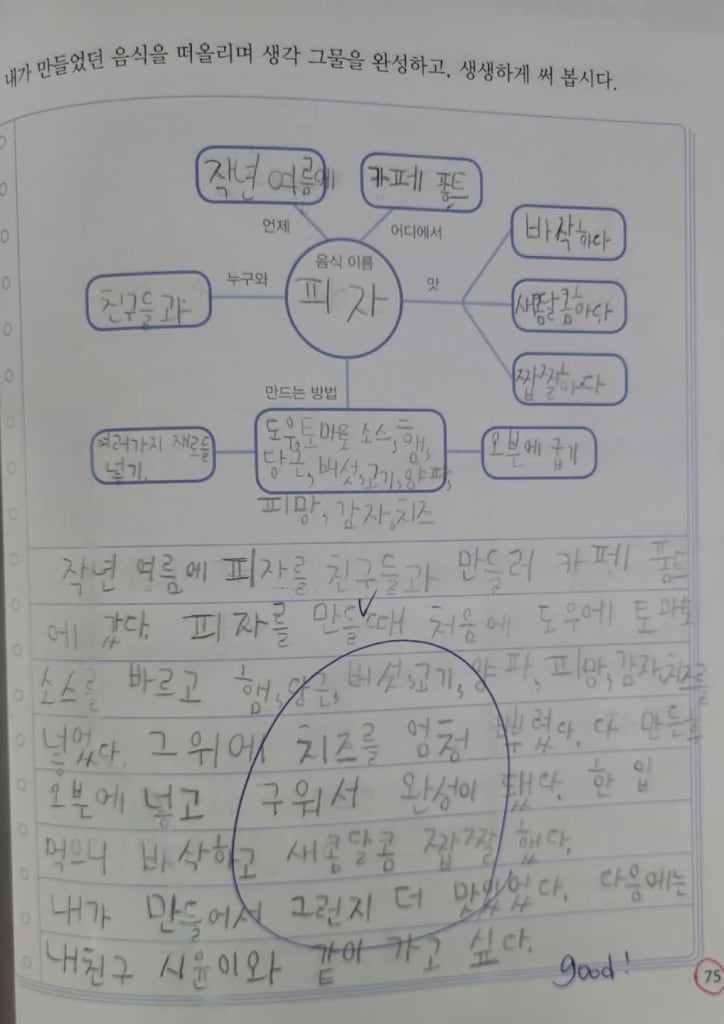 내가 만들었던 음식을 떠올리며 생각 그물을 완성하고, 생생하게 써 봅시다.
작년 여름에
카페 품트
언제
어디에서
바삭하다
친구들과
누구와
음식 이름
피자
맛
새콤달콤하다
짭짤하다
만드는 방법
여러가지 재료들
넣기.
도우, 토마토 소스, 햄,
당근, 버섯, 고기, 양파,
피망, 감자, 치즈
오븐에 굽기
작년 여름에 피자를 친구들과 만들러 카페 품트
에 갔다. 피자를 만들때 처음에 도우에 토마토
소스를 바르고 햄, 당근, 버섯, 고기, 양파, 피망, 감자, 치즈를
넣었다. 그 위에 치즈를 엄청 뿌렸다. 다 만든후
오븐에 넣고 구워서 완성이 됐다. 한 입
먹으니 바삭하고 새콤달콤 짭짤 했다.
내가 만들어서 그런지 더 맛있었다. 다음에는
내친구 시윤이와 같이 가고 싶다.
good!
75